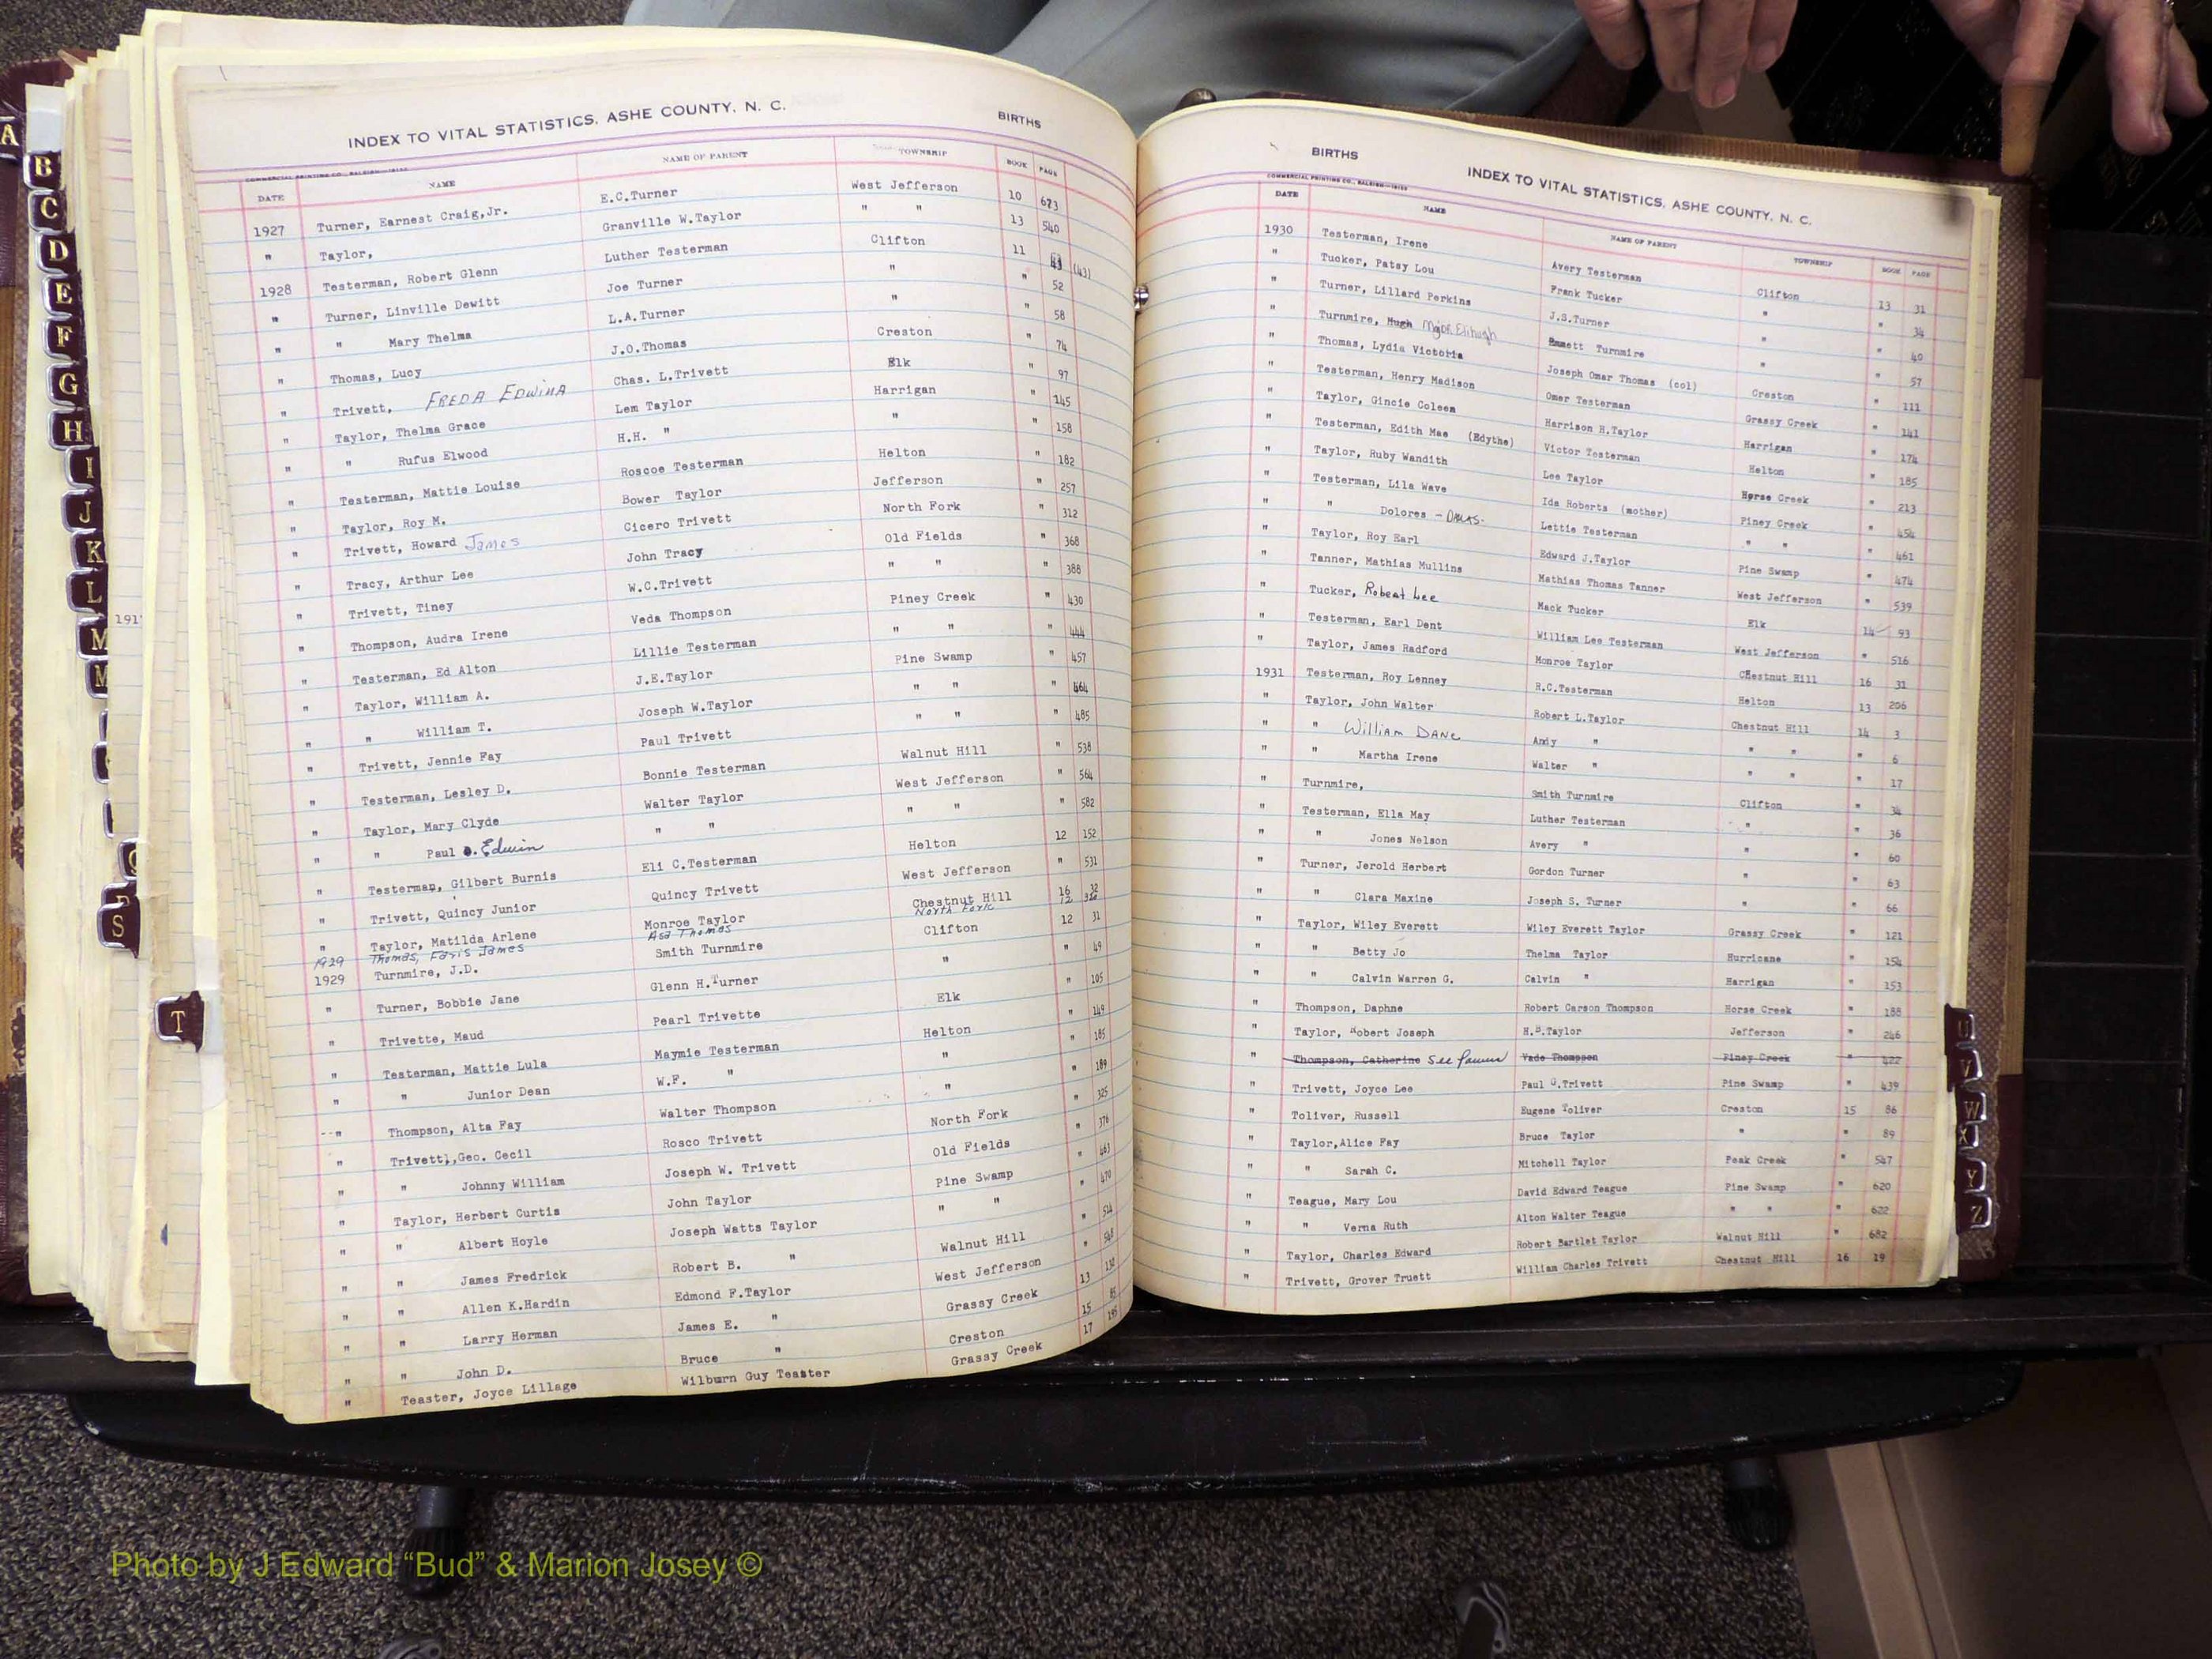 INDEX TO VITAL STATISTICS, ASHE COUNTY, N. C. BIRTHS
COMMERCIAL PRINTING CO., RALEIGH
DATE NAME NAME OF PARENT TOWNSHIP BOOK PAGE
1927 Turner, Earnest Craig,Jr. E.C.Turner West Jefferson 10 673
" Taylor, Granville W.Taylor " " 13 540
1928 Testerman, Robert Glenn Luther Testerman Clifton 11 43 (43)
" Turner, Linville Dewitt Joe Turner " " 52
" " Mary Thelma L.A.Turner " " 58
" Thomas, Lucy J.O.Thomas Creston " 74
" Trivett, FREDA EDWINA Chas. L.Trivett Elk " 97
" Taylor, Thelma Grace Lem Taylor Harrigan " 145
" " Rufus Elwood H.H. " " " 158
" Testerman, Mattie Louise Roscoe Testerman Helton " 182
" Taylor, Roy M. Bower Taylor Jefferson " 257
" Trivett, Howard James Cicero Trivett North Fork " 312
" Tracy, Arthur Lee John Tracy Old Fields " 368
" Trivett, Tiney W.C.Trivett " " " 388
" Thompson, Audra Irene Veda Thompson Piney Creek " 430
" Testerman, Ed Alton Lillie Testerman " " " 444
" Taylor, William A. J.E.Taylor Pine Swamp " 457
" " William T. Joseph W.Taylor " " " 464
" Trivett, Jennie Fay Paul Trivett " " " 485
" Testerman, Lesley D. Bonnie Testerman Walnut Hill " 538
" Taylor, Mary Clyde Walter Taylor West Jefferson " 564
" " Paul Edwin " " " " " 582
" Testerman, Gilbert Burnis Eli C.Testerman Helton 12 152
" Trivett, Quincy Junior Quincy Trivett West Jefferson " 531
" Taylor, Matilda Arlene Monroe Taylor Chestnut Hill 16 32
1929 Thomas, Faris James Asa Thomas North Fork 12
1929 Turnmire, J.D. Smith Turnmire Clifton 12 31
" Turner, Bobbie Jane Glenn H.Turner " " 49
" Trivette, Maud Pearl Trivette Elk " 105
" Testerman, Mattie Lula Maymie Testerman Helton " 149
" " Junior Dean W.F. " " " 185
" Thompson, Alta Fay Walter Thompson " " 189
" Trivett,Geo. Cecil Rosco Trivett North Fork " 325
" " Johnny William Joseph W. Trivett Old Fields " 376
" Taylor, Herbert Curtis John Taylor Pine Swamp " 463
" " Albert Hoyle Joseph Watts Taylor " " " 470
" " James Fredrick Robert B. " Walnut Hill " 514
" " Allen K.Hardin Edmond F.Taylor West Jefferson " 548
" " Larry Herman James E. " Grassy Creek 13 132
" " John D. Bruce " Creston 15 85
" Teaster, Joyce Lillage Wilburn Guy Teaster Grassy Creek 17 195
BIRTHS INDEX TO VITAL STATISTICS, ASHE COUNTY, N. C.
COMMERCIAL PRINTING CO., RALEIGH
DATE NAME NAME OF PARENT TOWNSHIP BOOK PAGE
1930 Testerman, Irene Avery Testerman Clifton 13 31
" Tucker, Patsy Lou Frank Tucker " " 34
" Turner, Lillard Perkins J.S.Turner " " 40
" Turnmire, Hugh Major Emmett Turnmire " " 57
" Thomas, Lydia Victoria Joseph Omar Thomas (col) Creston " 111
" Testerman, Henry Madison Omer Testerman Grassy Creek " 141
" Taylor, Gincie Coleen Harrison H.Taylor Harrigan " 174
" Testerman, Edith Mae (Edythe) Victor Testerman Helton " 185
" Taylor, Ruby Wandith Lee Taylor Horse Creek " 213
" Testerman, Lila Wave Ida Roberts (mother) Piney Creek " 454
" " Dolores - Lettie Testerman " " " 461
" Taylor, Roy Earl Edward J.Taylor Pine Swamp " 474
" Tanner, Mathias Mullins Mathias Thomas Tanner West Jefferson " 539
" Tucker, Robert Lee Mack Tucker Elk 14 93
" Testerman, Earl Dent William Lee Testerman West Jefferson " 516
" Taylor, James Radford Monroe Taylor Chestnut Hill 16 31
1931 Testerman, Roy Lenney R.C.Testerman Helton 13 206
" Taylor, John Walter Robert L.Taylor Chestnut Hill 14 3
" " William Dane Andy " " " " 6
" " Martha Irene Walter " " " " 17
" Turnmire, Smith Turnmire Clifton " 34
" Testerman, Ella May Luther Testerman " " 36
" " Jones Nelson Avery " " " 60
" Turner, Jerold Herbert Gordon Turner " " 63
" " Clara Maxine Joseph S. Turner " " 66
" Taylor, Wiley Everett Wiley Everett Taylor Grassy Creek " 121
" " Betty Jo Thelma Taylor Hurricane " 154
" " Calvin Warren G. Calvin " Harrigan " 153
" Thompson, Daphne Robert Carson Thompson Horse Creek " 188
" Taylor, Robert Joseph H.B.Taylor Jefferson " 246
" Thompson, Catherine See Vade Thompson Piney Creek " 422
" Trivett, Joyce Lee Paul G.Trivett Pine Swamp " 439
" Toliver, Russell Eugene Toliver Creston 15 86
" Taylor,Alice Fay Bruce Taylor " " 89
" " Sarah C. Mitchell Taylor Peak Creek " 547
" Teague, Mary Lou David Edward Teague Pine Swamp " 620
" " Verna Ruth Alton Walter Teague " " " 622
" Taylor, Charles Edward Robert Bartlet Taylor Walnut Hill " 682
" Trivett, Grover Truett William Charles Trivett Chestnut Hill 16 19
A
B
C
D
E
F
G
H
I
J
K
L
M
M
S
T
191
U
V
W
X
Y
Z
Photo by J Edward “Bud” & Marion Josey ©